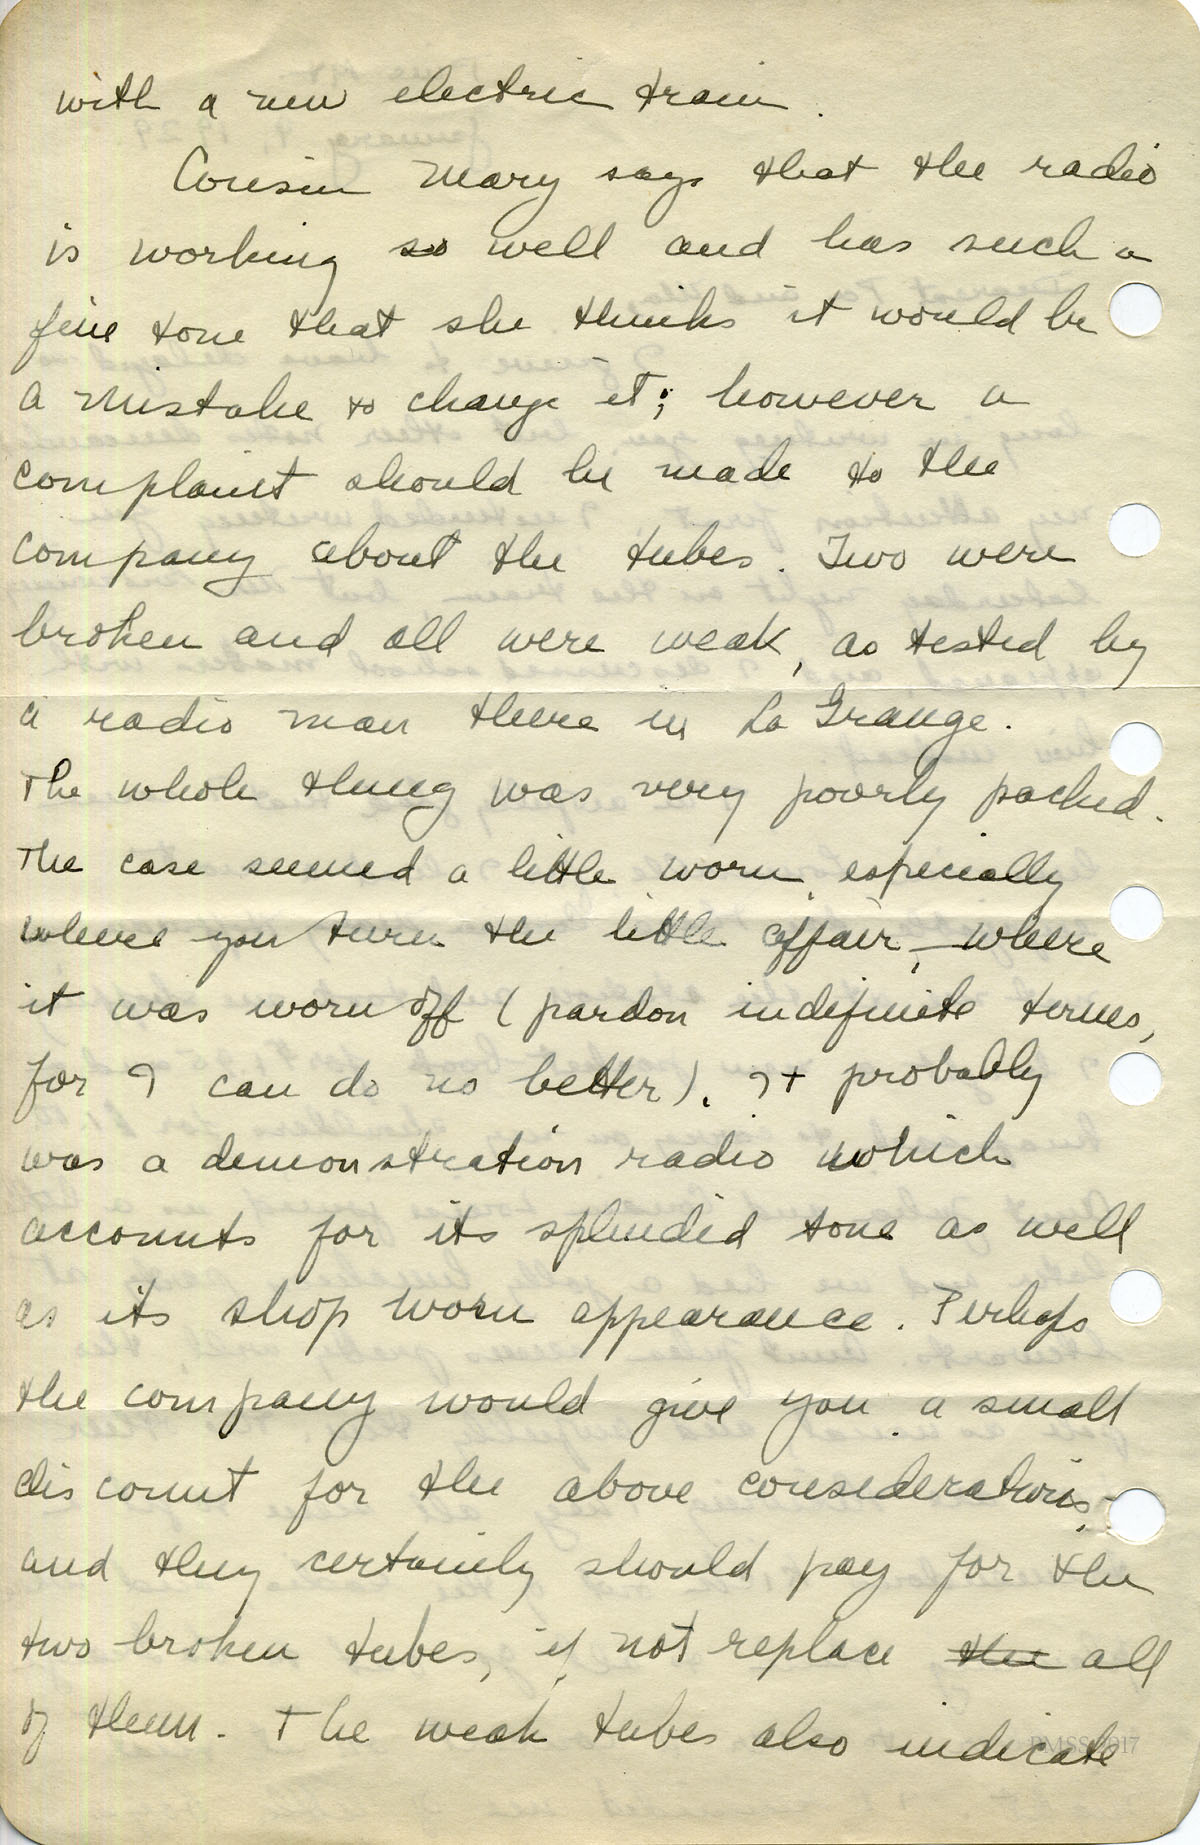 with a new electric train.
Cousin Mary says that the radio
is working so well and has such a
fine tone that she thinks it would be
a mistake to change it; however a
complaint should be made to the
company about the tubes. Two were
broken and all were weak, as tested by
a radio man there in La Grange.
The whole thing was very poorly packed.
The case seemed a little worn, especially
where you turn the little affair, where
it was worn off (pardon indefinite terms,
for I can do no better). It probably
was a demonstration radio which
accounts for its splendid tone as well
as its shop worn appearance. Perhaps
the company would give you a small
discount for the above considerations,
and they certainly should pay for the
two broken tubes, if not replace the all
of them. The weak tubes also indicate